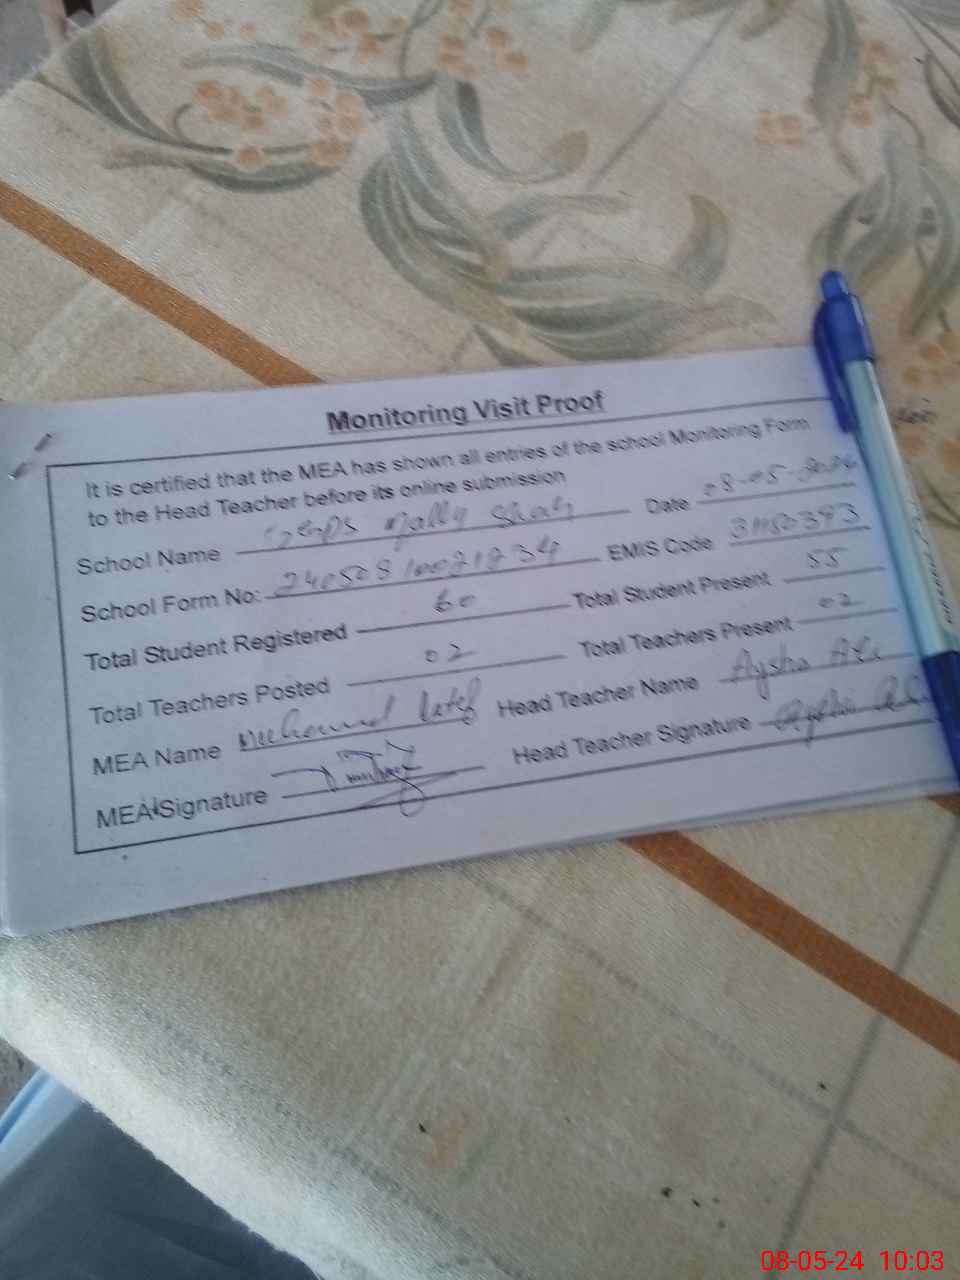 Monitoring Visit Proof
It is certified that the MEA has shown all entries of the school Monitoring Form
to the Head Teacher before its online submission
School Name Shah Date 08-05-2024
School Form No: EMIS Code
Total Student Registered 60 Total Student Present 55
Total Teachers Posted 02 Total Teachers Present 02
MEA Name Head Teacher Name Aysha Ali
MEA Signature Head Teacher Signature Aysha Ali
08-05-24 10:03